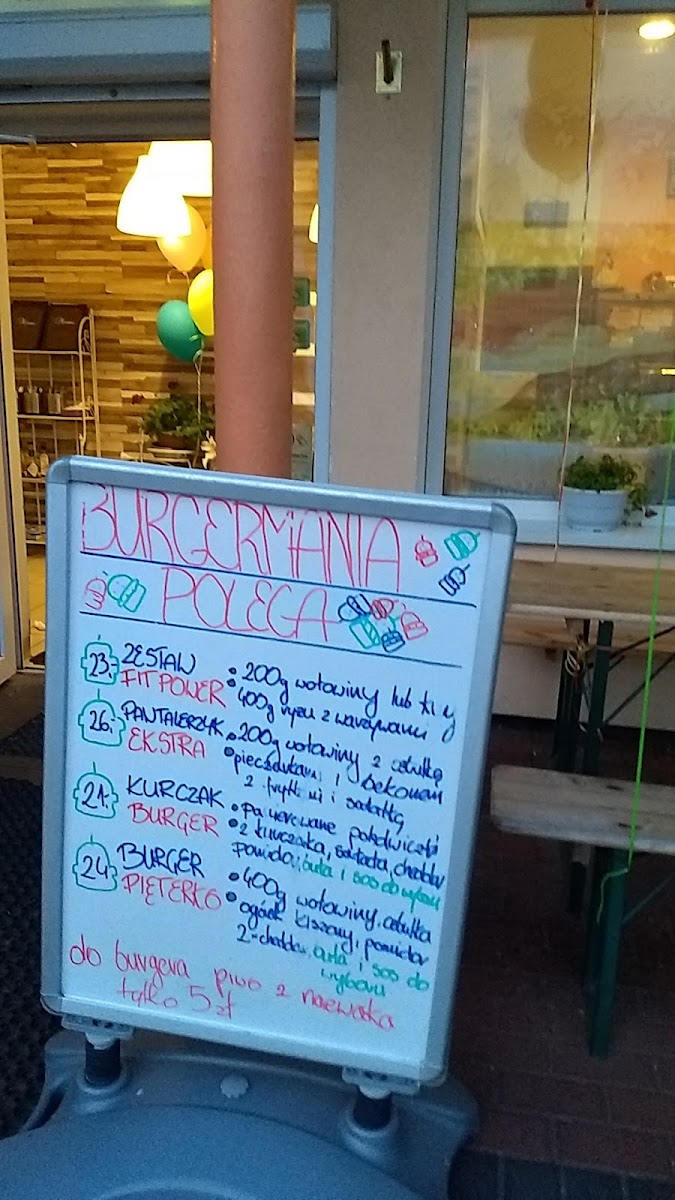 BURGERMANIA
POLECA
23. ZESTAW FIT POWER
• 200g wołowiny lub
• 400g ryżu z warzywami
26. PANTALERZYK EKSTRA
• 200g wołowiny z cebulką
• pieczarkami i bekonem
z frytkami i sałatką
21. KURCZAK BURGER
• Panierowane polędwiczki
• z kurczaka, sałata, cheddar
pomidor, buła i sos do wyboru
24. BURGER PIĘTERKO
• 400g wołowiny, cebulka
• ogórek kiszony, pomidor
2x cheddar, buła i sos do
wyboru
do burgera piwo z nalewaka
tylko 5 zł